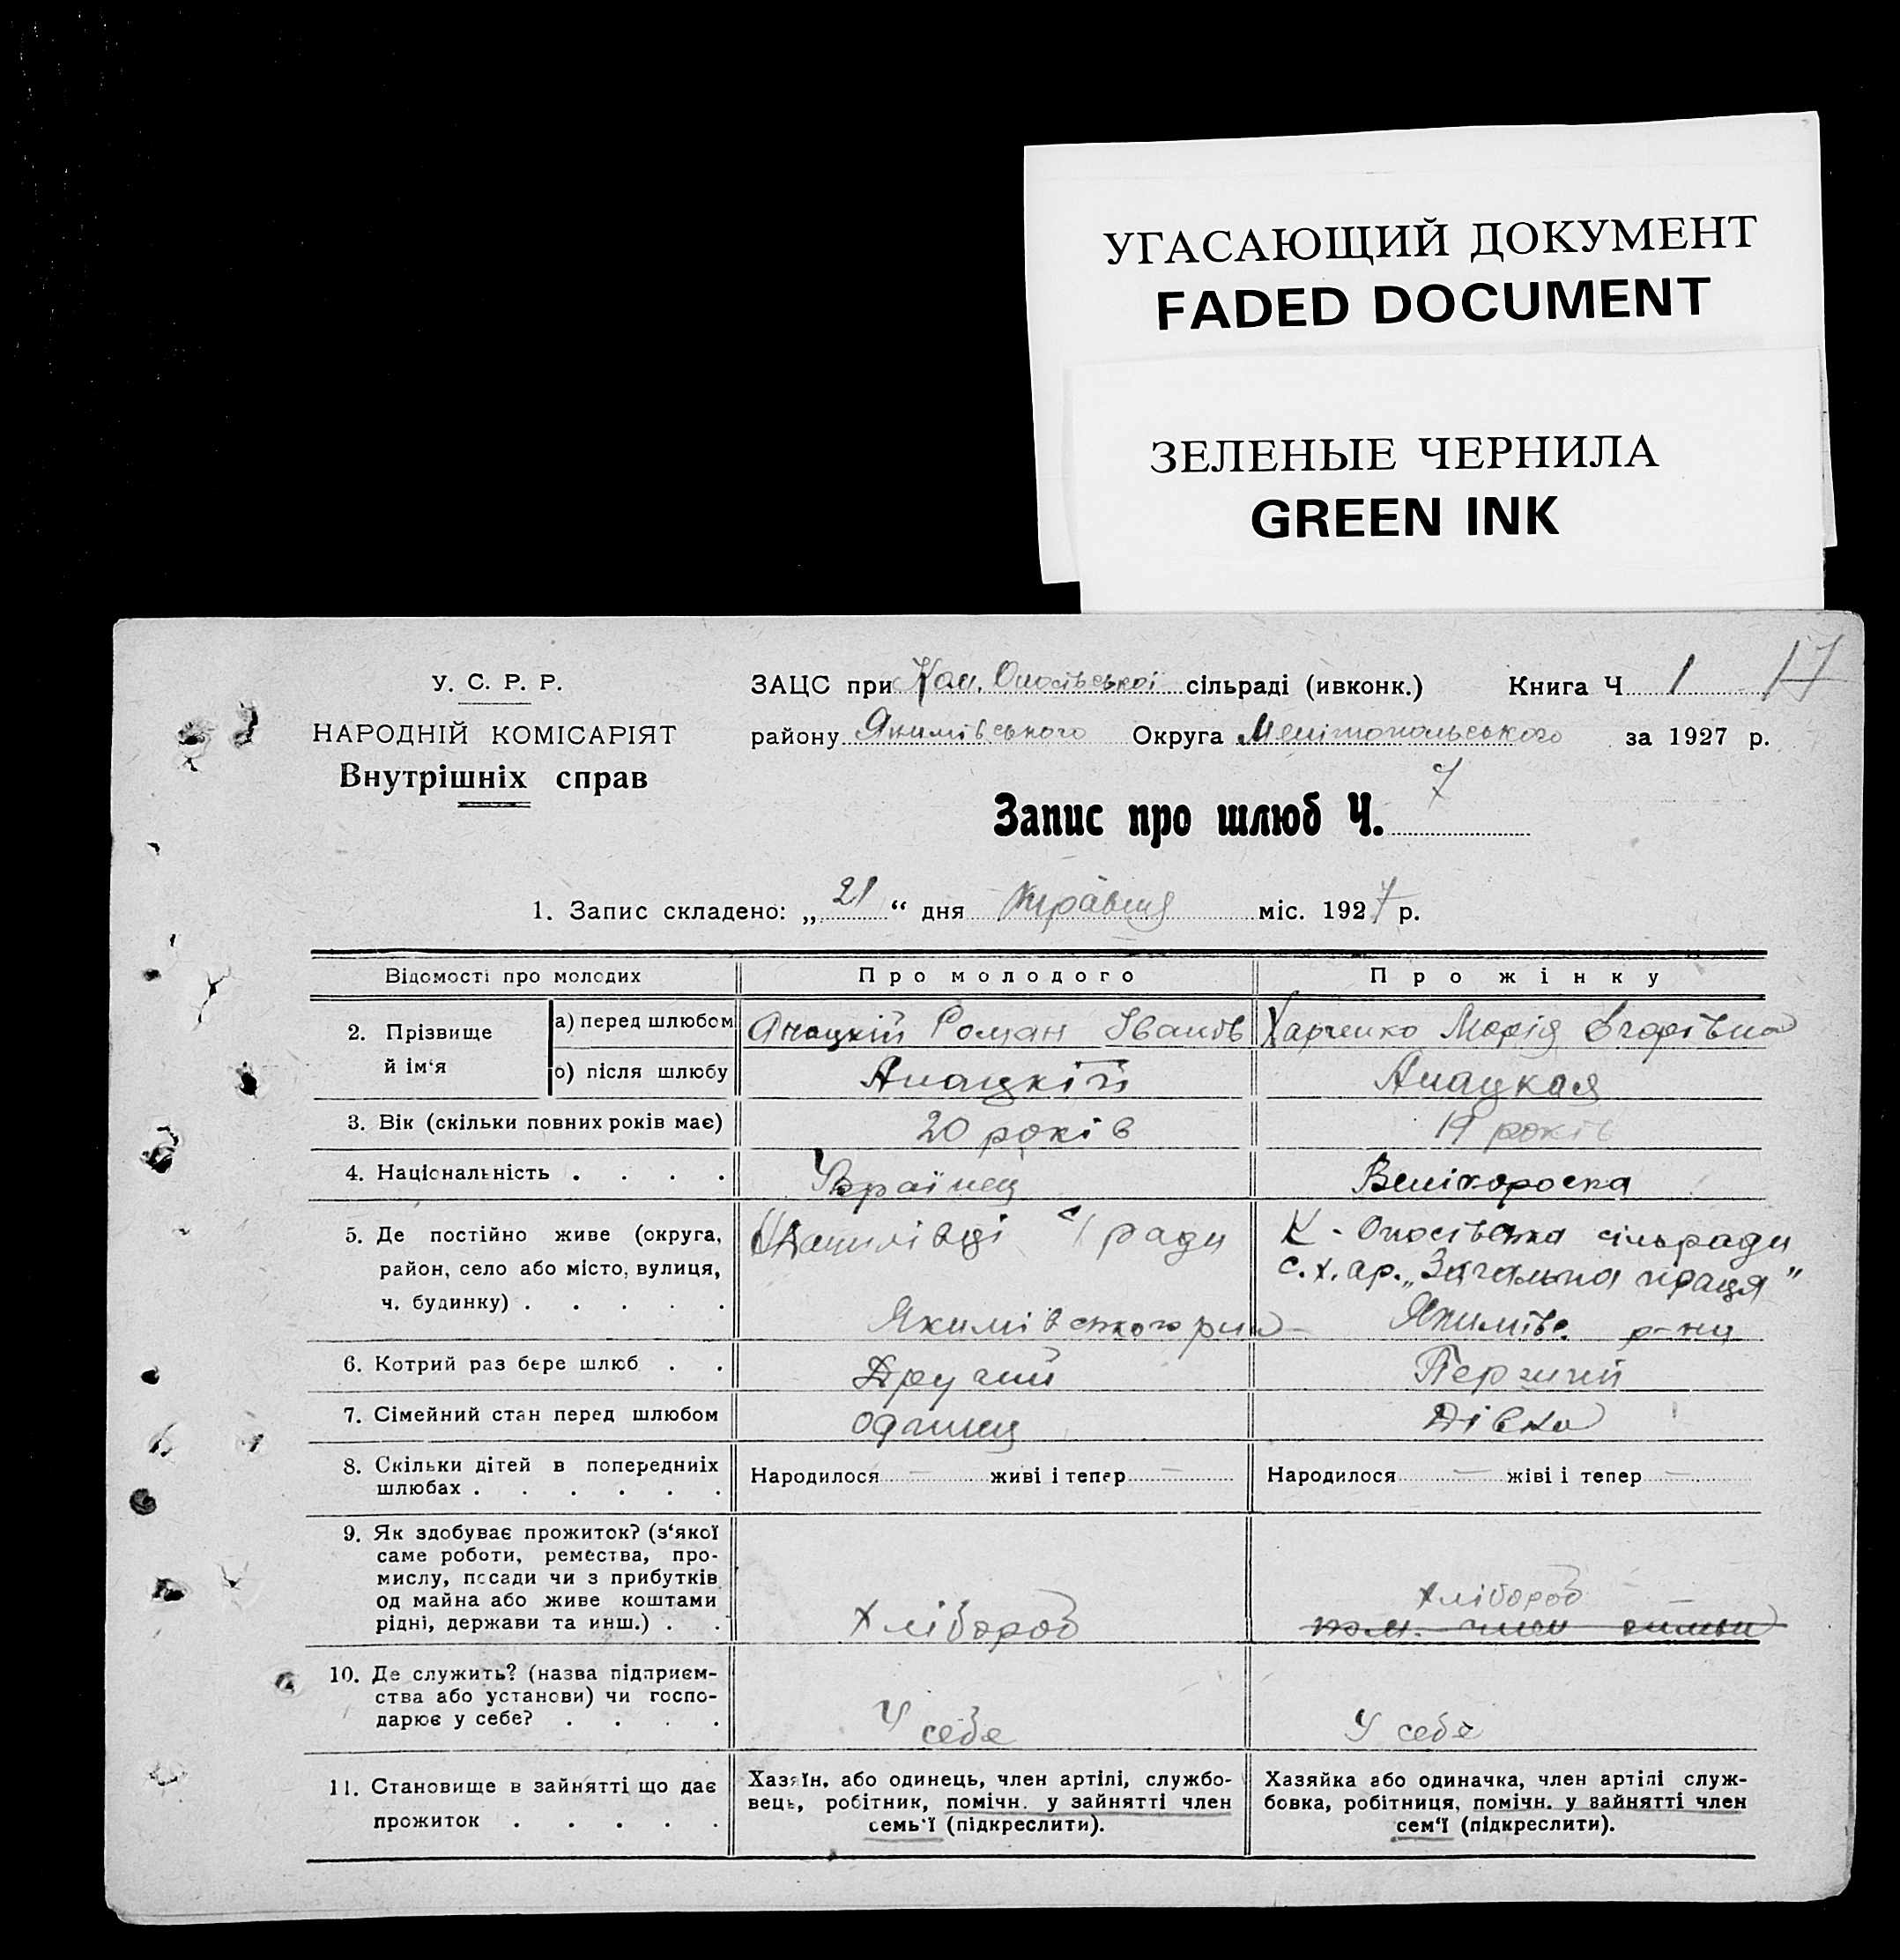 УГАСАЮЩИЙ ДОКУМЕНТ
FADED DOCUMENT
ЗЕЛЕНЫЕ ЧЕРНИЛА
GREEN INK
У. С. Р. Р.
НАРОДНІЙ КОМІСАРІЯТ
Внутрішніх справ
ЗАЦС при сільраді (ивконк.) Книга Ч 1 17
району Якимівського Округа Мелітопольського за 1927 р.
Запис про шлюб Ч. 7
1. Запис складено: „ 21 “ дня травня міс. 1927 р.
Відомості про молодих
Про молодого
Про жінку
2. Прізвище й ім‘я
а) перед шлюбом
Роман Іванів
Харченко Марія Єгорівна
о) після шлюбу
Анацкій
Анацкая
3. Вік (скільки повних років має)
20 років
19 років
4. Національність . . . .
Українец
Велікороска
5. Де постійно живе (округа,
район, село або місто, вулиця,
ч. будинку) . . . . .
с/ ради
Якимівського рна
сільради
с.х. ар. „Загальна праця”
Якимівс. р-ну
6. Котрий раз бере шлюб . .
Другий
Перший
7. Сімейний стан перед шлюбом
одинец
Дівка
8. Скільки дітей в попередниіх
шлюбах . . . . . .
Народилося — живі і тепер —
Народилося — жіві і тепер —
9. Як здобуває прожиток? (з‘якої
саме роботи, ремества, про-
мислу, посади чи з прибутків
од майна або живе коштами
рідні, держави та инш.) . .
Хлібороб
Хлібороб
10. Де служить? (назва підприєм-
ства або установи) чи госпо-
дарює у себе? . . . .
У себе
У себе
11. Становище в зайнятті що дає
прожиток . . . . .
Хазяїн, або одинець, член артілі, службо-
вець, робітник, помічн. у зайнятті член
семь‘ї (підкреслити).
Хазяйка або одиначка, член артілі служ-
бовка, робітниця, помічн. у зайнятті член
сем‘ї (підкреслити).